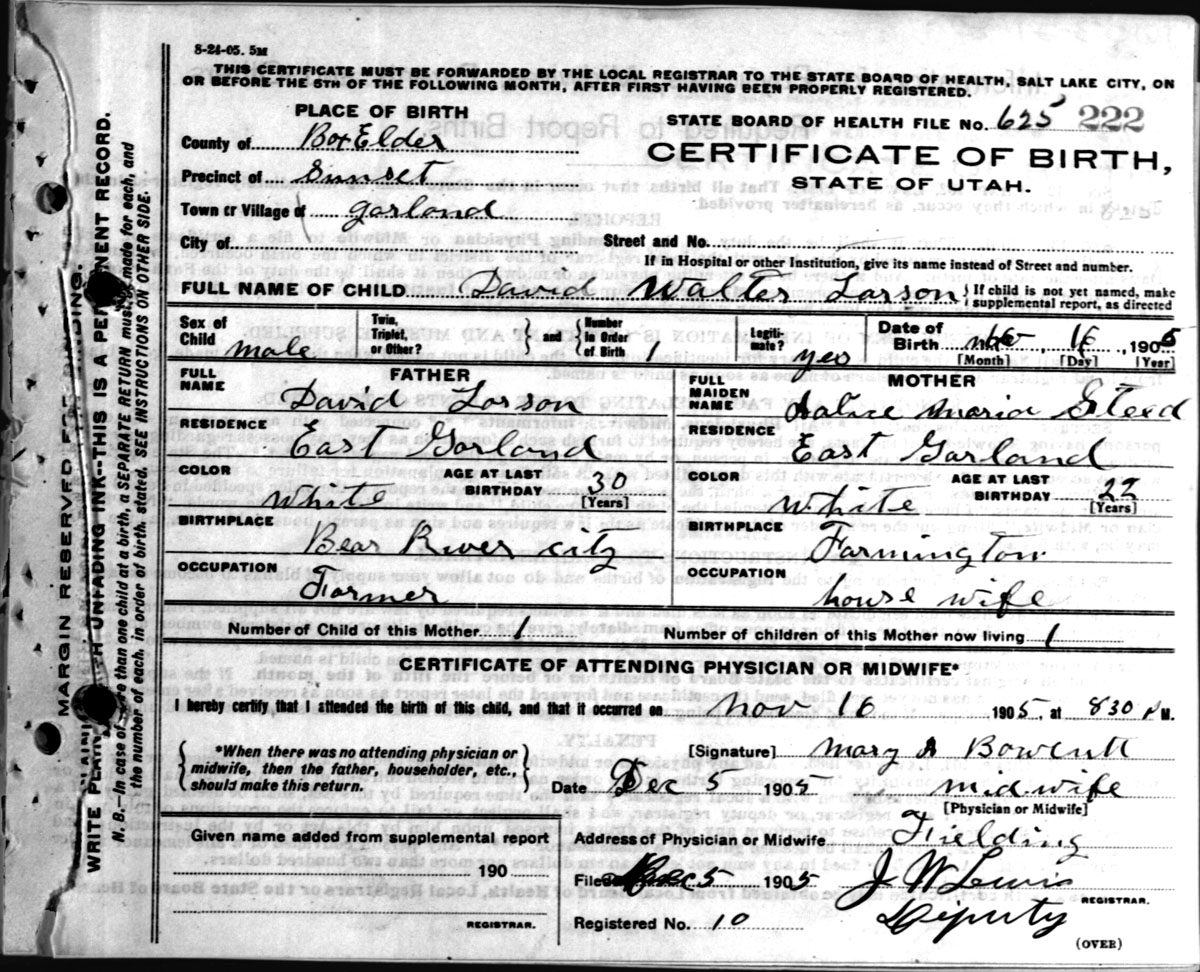 8-24-05. 5M
THIS CERTIFICATE MUST BE FORWARDED BY THE LOCAL REGISTRAR TO THE STATE BOARD OF HEALTH, SALT LAKE CITY, ON
OR BEFORE THE 5TH OF THE FOLLOWING MONTH, AFTER FIRST HAVING BEEN PROPERLY REGISTERED.
PLACE OF BIRTH
STATE BOARD OF HEALTH FILE No. 625 222
County of Box Elder
CERTIFICATE OF BIRTH,
Precinct of Sunset
STATE OF UTAH.
Town or Village of Garland
City of Street and No.
If in Hospital or other Institution, give its name instead of Street and number.
FULL NAME OF CHILD David Walter Larson { If child is not yet named, make
supplemental report, as directed
Sex of Child male
Twin, Triplet, or Other? } and { Number in Order of Birth 1
Legitimate? yes
Date of Birth 16, 1905
[Month] [Day] [Year]
FATHER
FULL NAME David Larson
RESIDENCE East Garland
COLOR White AGE AT LAST BIRTHDAY 30 [Years]
BIRTHPLACE Bear River city
OCCUPATION Farmer
MOTHER
FULL MAIDEN NAME Maria Steed
RESIDENCE East Garland
COLOR White AGE AT LAST BIRTHDAY 22 [Years]
BIRTHPLACE Farmington
OCCUPATION house wife
Number of Child of this Mother 1 Number of children of this Mother now living 1
CERTIFICATE OF ATTENDING PHYSICIAN OR MIDWIFE*
I hereby certify that I attended the birth of this child, and that it occurred on Nov 16 1905, at 830 P M.
{ *When there was no attending physician or
midwife, then the father, householder, etc.,
should make this return. }
[Signature] Mary A
Date Dec 5 1905, midwife
[Physician or Midwife]
Given name added from supplemental report
190
REGISTRAR.
Address of Physician or Midwife Fielding
Filed Dec 5 1905 J W Lewis
REGISTRAR.
Registered No. 10 Deputy
(OVER)
MARGIN RESERVED FOR BINDING.
WRITE PLAINLY WITH UNFADING INK--THIS IS A PERMANENT RECORD.
N. B.--In case of more than one child at a birth, a SEPARATE RETURN must be made for each, and
the number of each, in order of birth, stated. SEE INSTRUCTIONS ON OTHER SIDE.